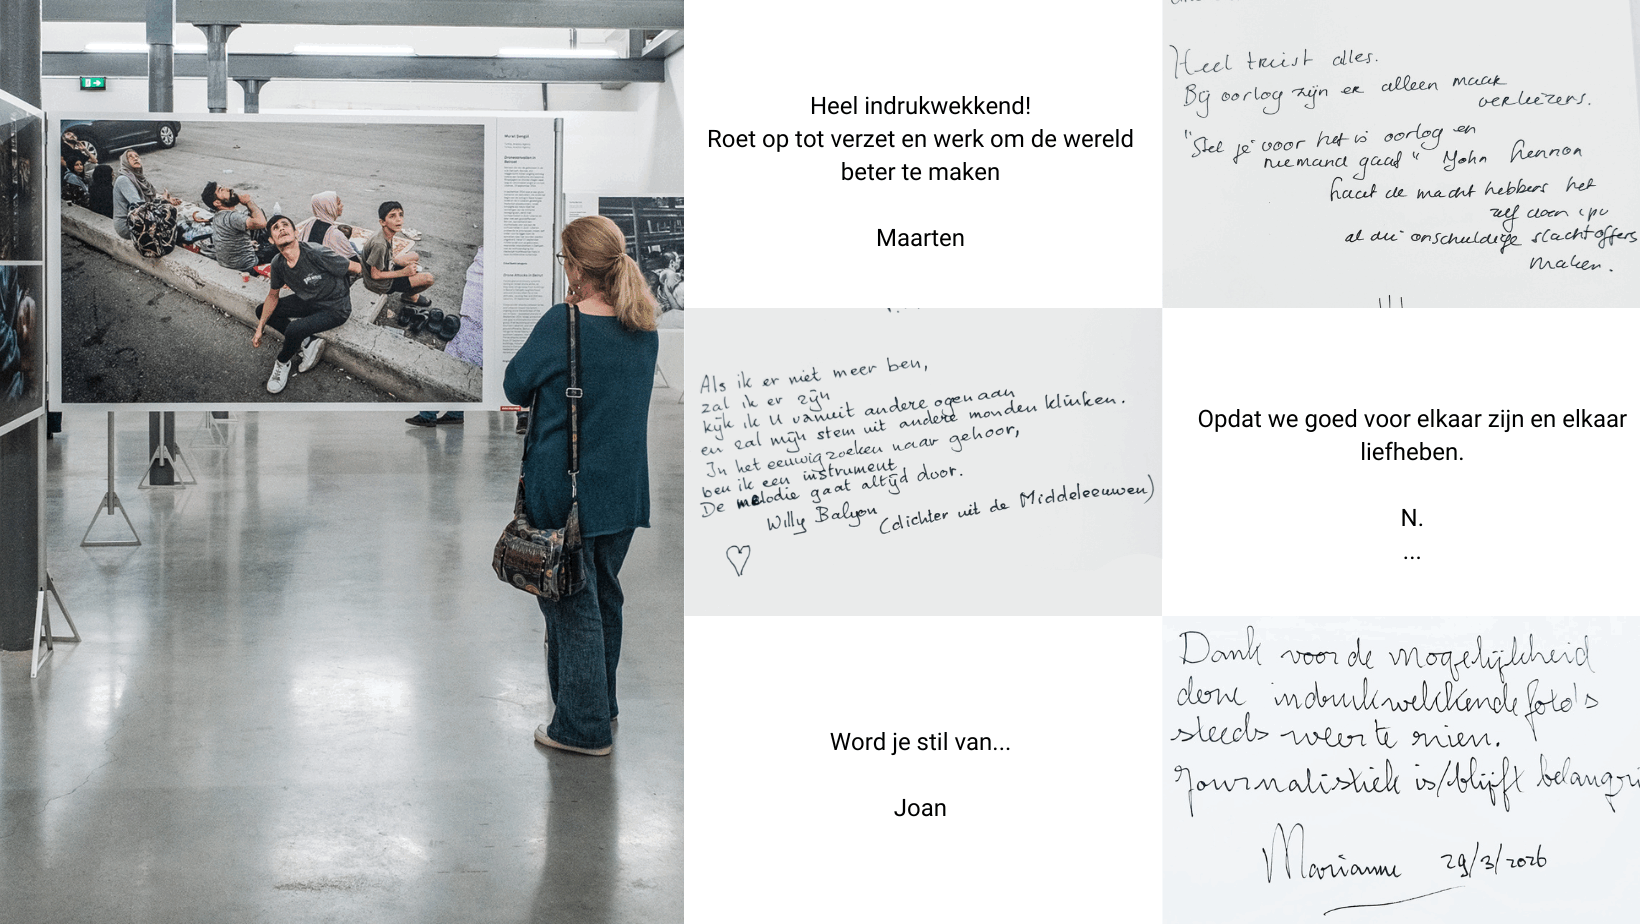 Heel indrukwekkend!
Roet op tot verzet en werk om de wereld
beter te maken
Maarten
Heel triest alles.
Bij oorlog zijn er alleen maar
verliezers.
"Stel je voor het is oorlog en
niemand gaat" John Lennon
haat de macht hebbers het
zelf doen ipv
al die onschuldige slachtoffers
maken.
!!!
Als ik er niet meer ben,
zal ik er zijn
kijk ik U vanuit andere ogen aan
en zal mijn stem uit andere monden klinken.
In het eeuwig zoeken naar gehoor,
ben ik een instrument
De melodie gaat altijd door.
Willy Balyon
(dichter uit de Middeleeuwen)
Opdat we goed voor elkaar zijn en elkaar
liefheben.
N.
...
Word je stil van...
Joan
Dank voor de mogelijkheid
deze indrukwekkende foto's
steeds weer te zien.
Journalistiek is/blijft belangri
Marianne 29/3/2026